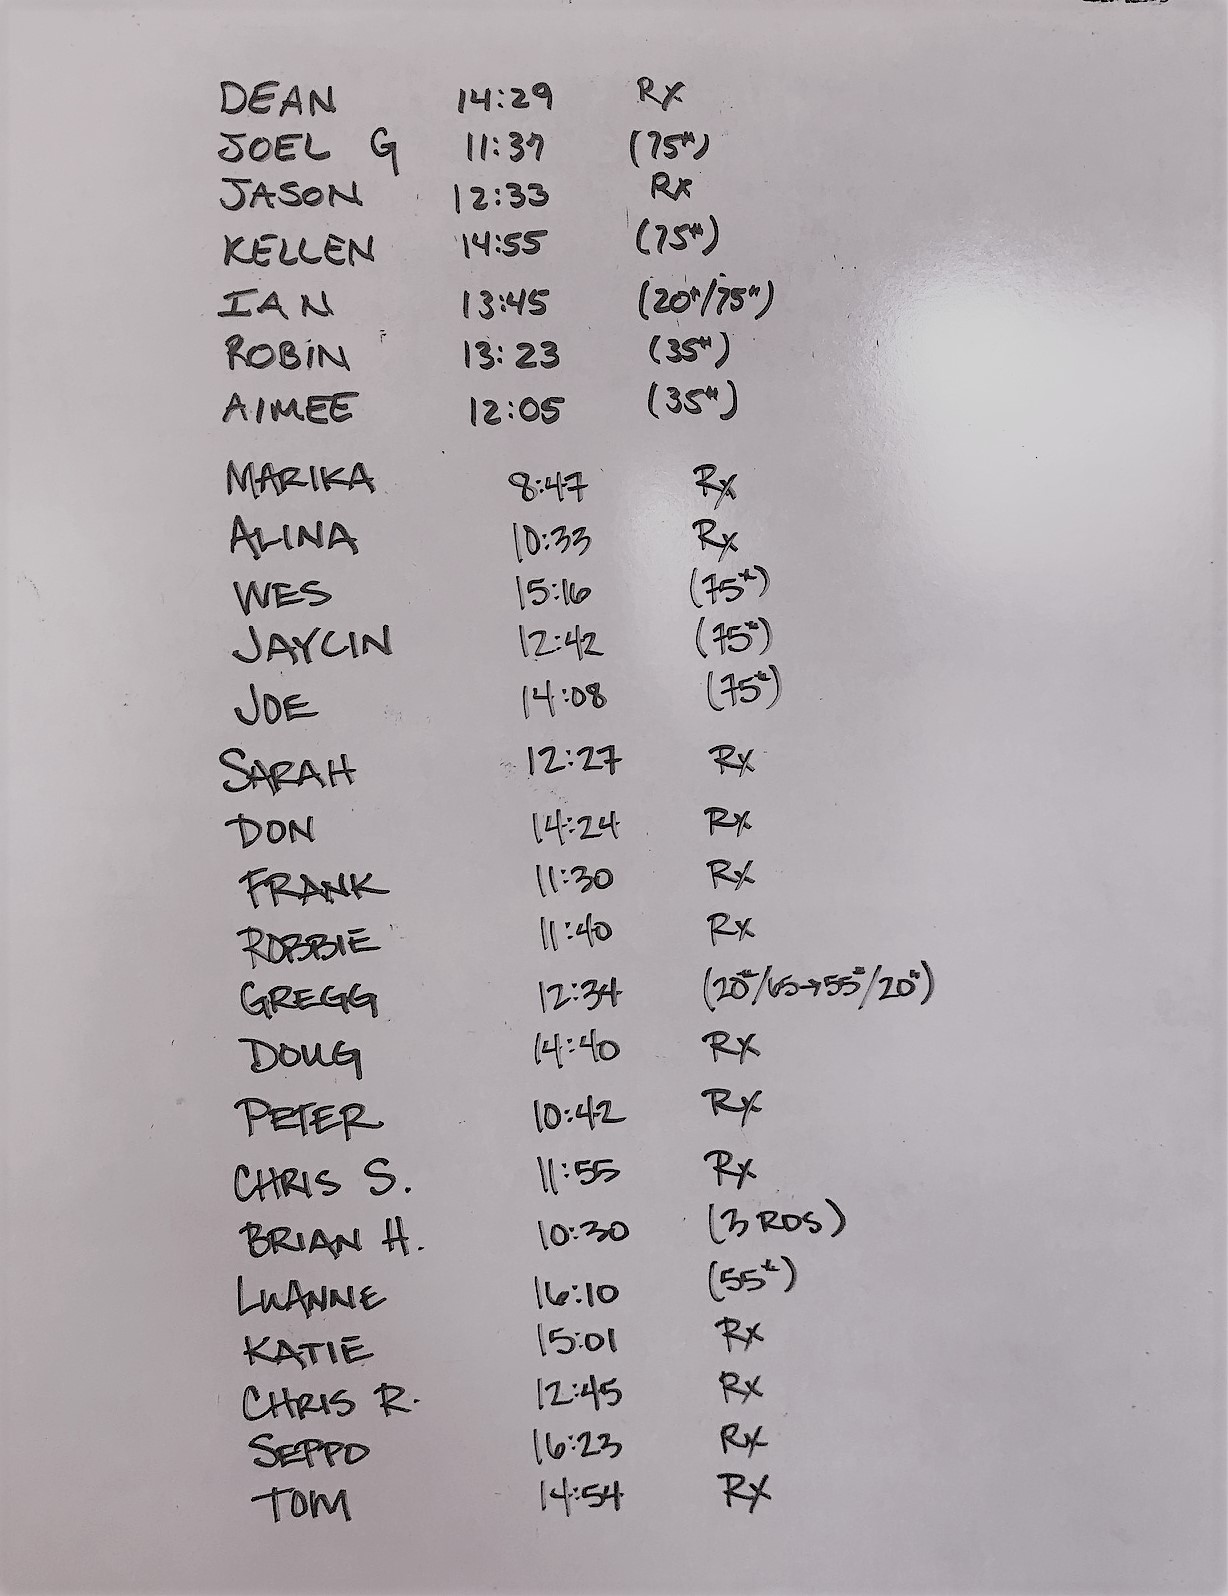 DEAN 14:29 Rx
JOEL G 11:37 (75#)
JASON 12:33 Rx
KELLEN 14:55 (75#)
IAN 13:45 (20#/75#)
ROBIN 13:23 (35#)
AIMEE 12:05 (35#)
MARIKA 8:47 Rx
ALINA 10:33 Rx
WES 15:16 (75#)
JAYLIN 12:42 (75#)
JOE 14:08 (75#)
SARAH 12:27 Rx
DON 14:24 Rx
FRANK 11:30 Rx
ROBBIE 11:40 Rx
GREGG 12:34 (20#/65→55#/20#)
DOUG 14:40 Rx
PETER 10:42 Rx
CHRIS S. 11:55 Rx
BRIAN H. 10:30 (3 RDS)
LUANNE 16:10 (55#)
KATIE 15:01 Rx
CHRIS R. 12:45 Rx
SEPPO 16:23 Rx
TOM 14:54 Rx